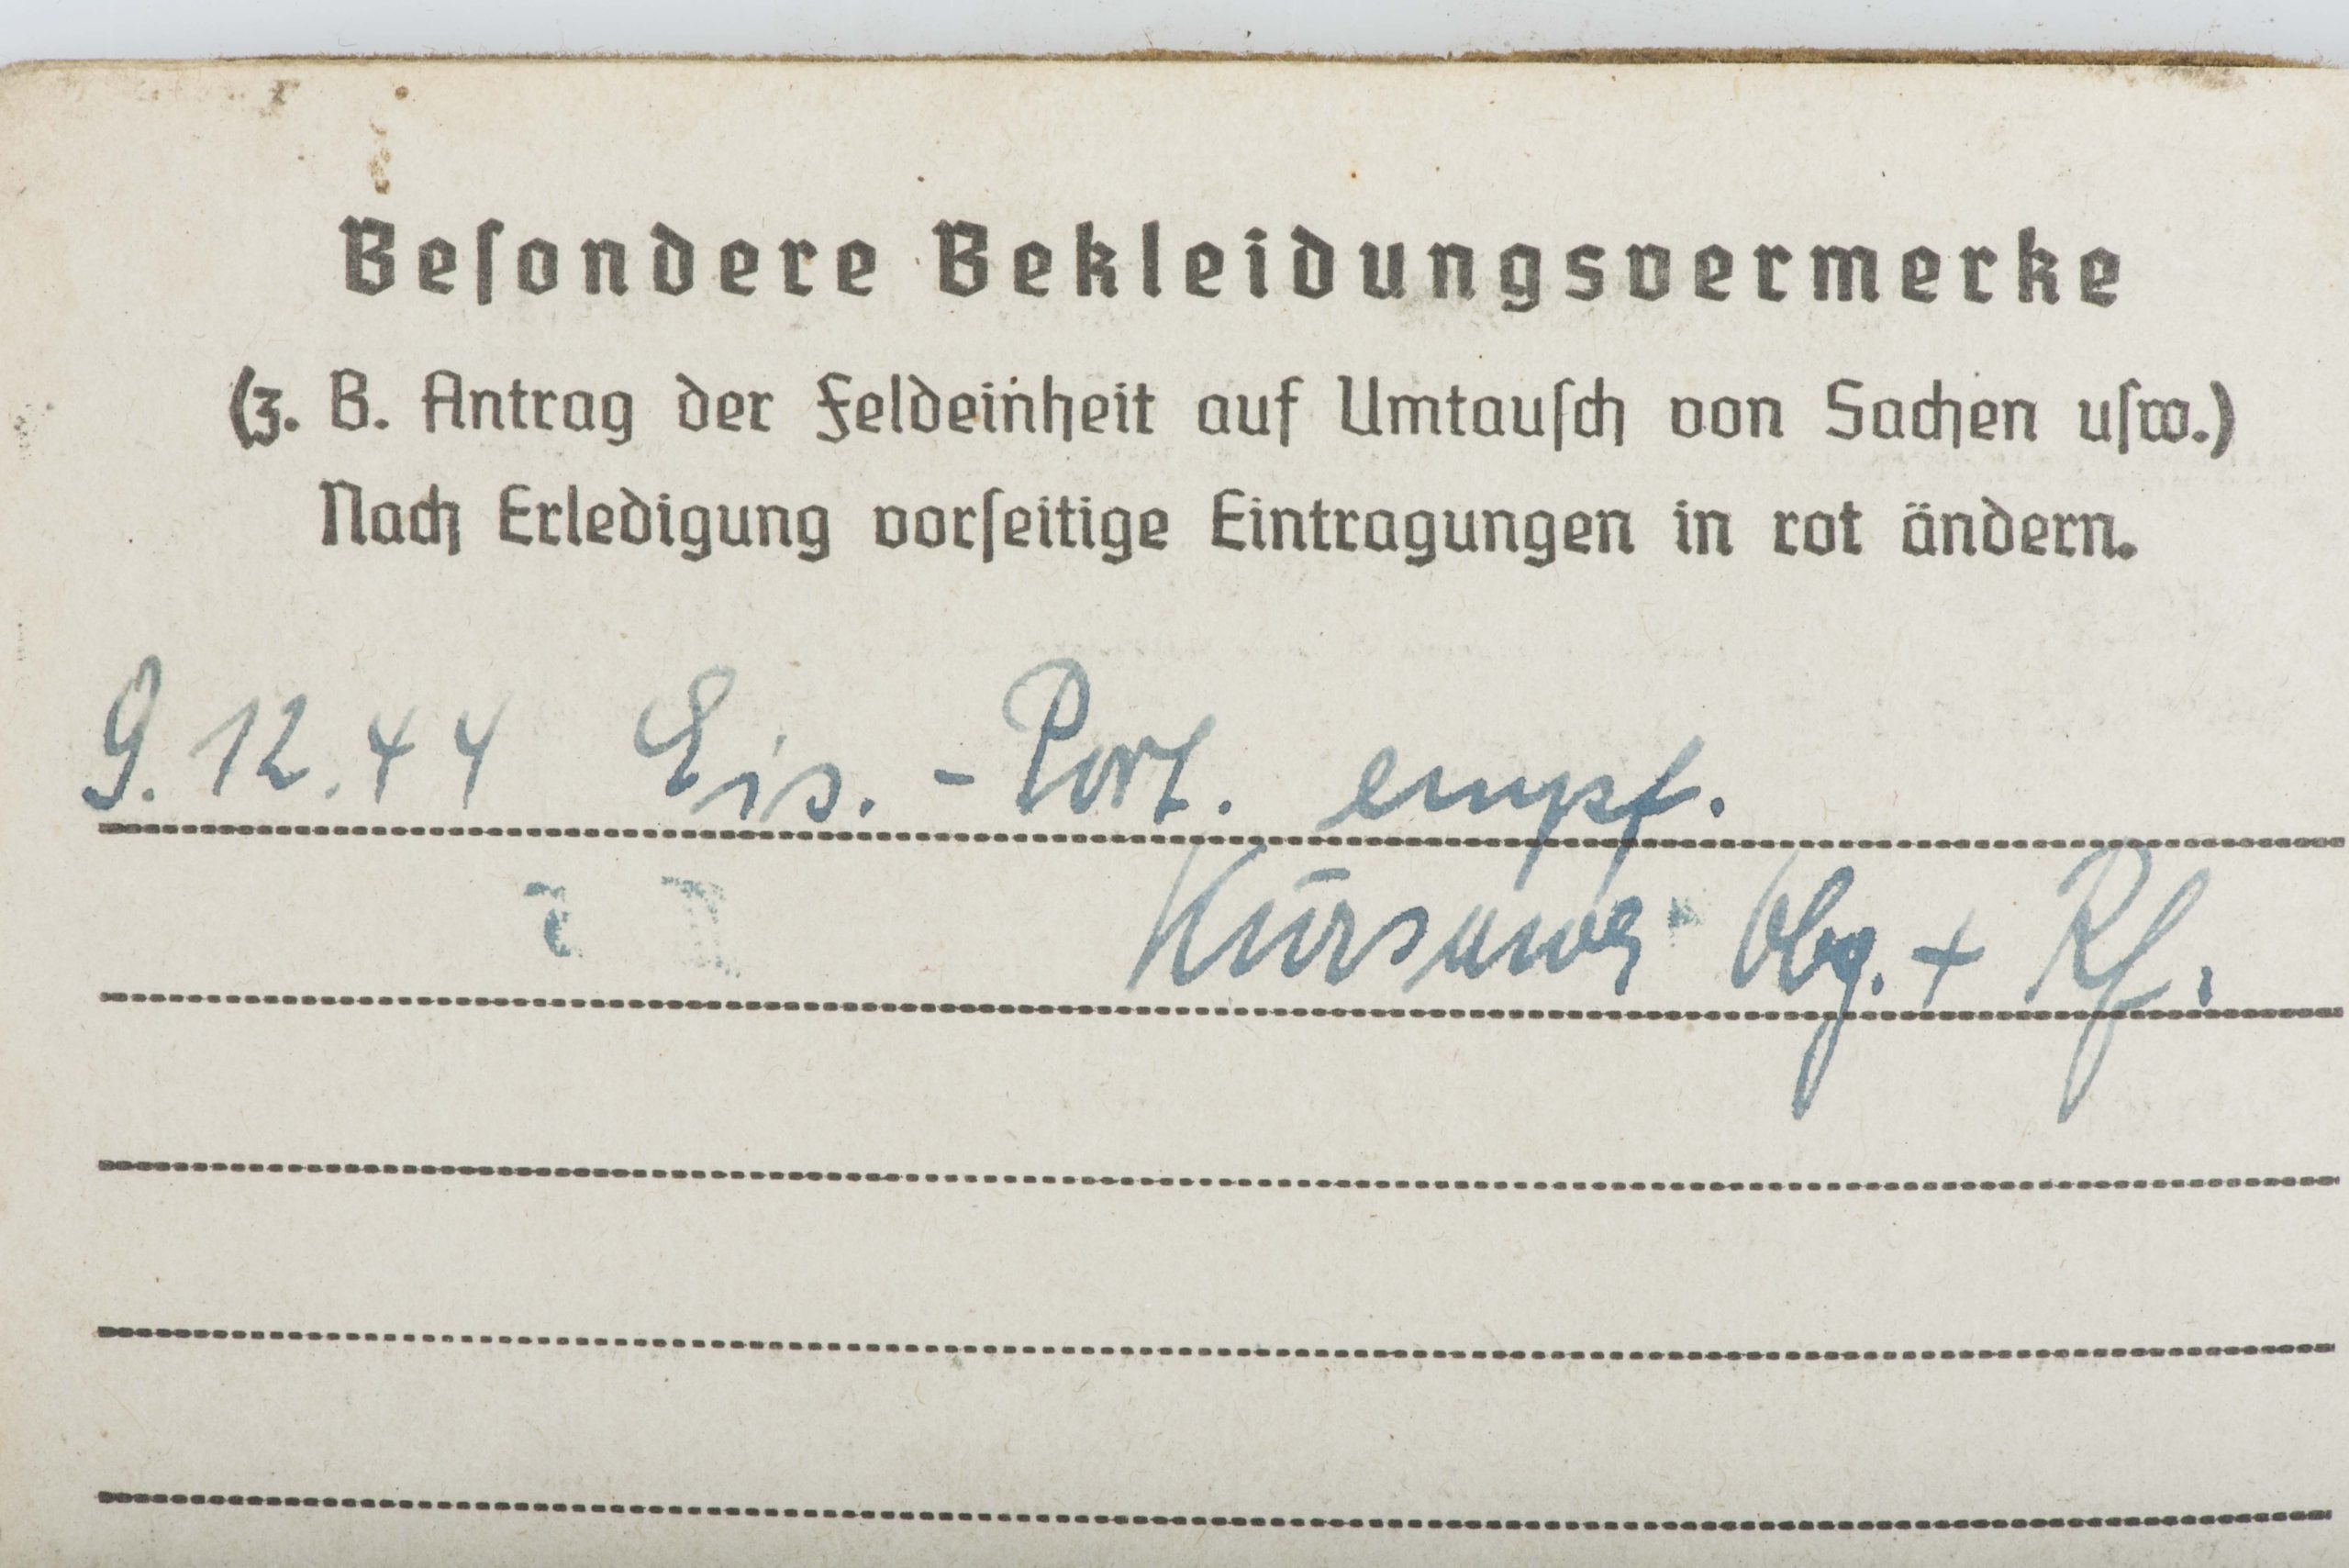 Besondere Bekleidungsvermerke
(z. B. Antrag der Feldeinheit auf Umtausch von Sachen usw.)
Nach Erledigung vorseitige Eintragungen in rot ändern.
9.12.44 Eis.-Port. empf.
+